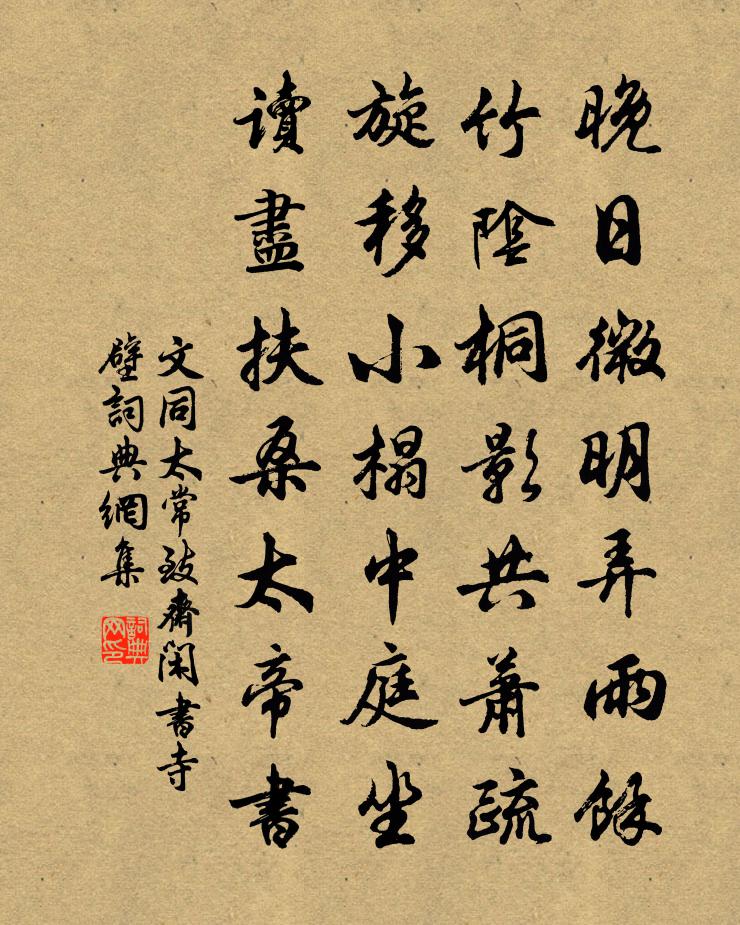 晚日微明弄雨餘
竹陰桐影共蕭疏
旋移小榻中庭坐
讀盡扶桑太帝書
文同太常致齋閑書寺
壁詞典網集
詞典
网印